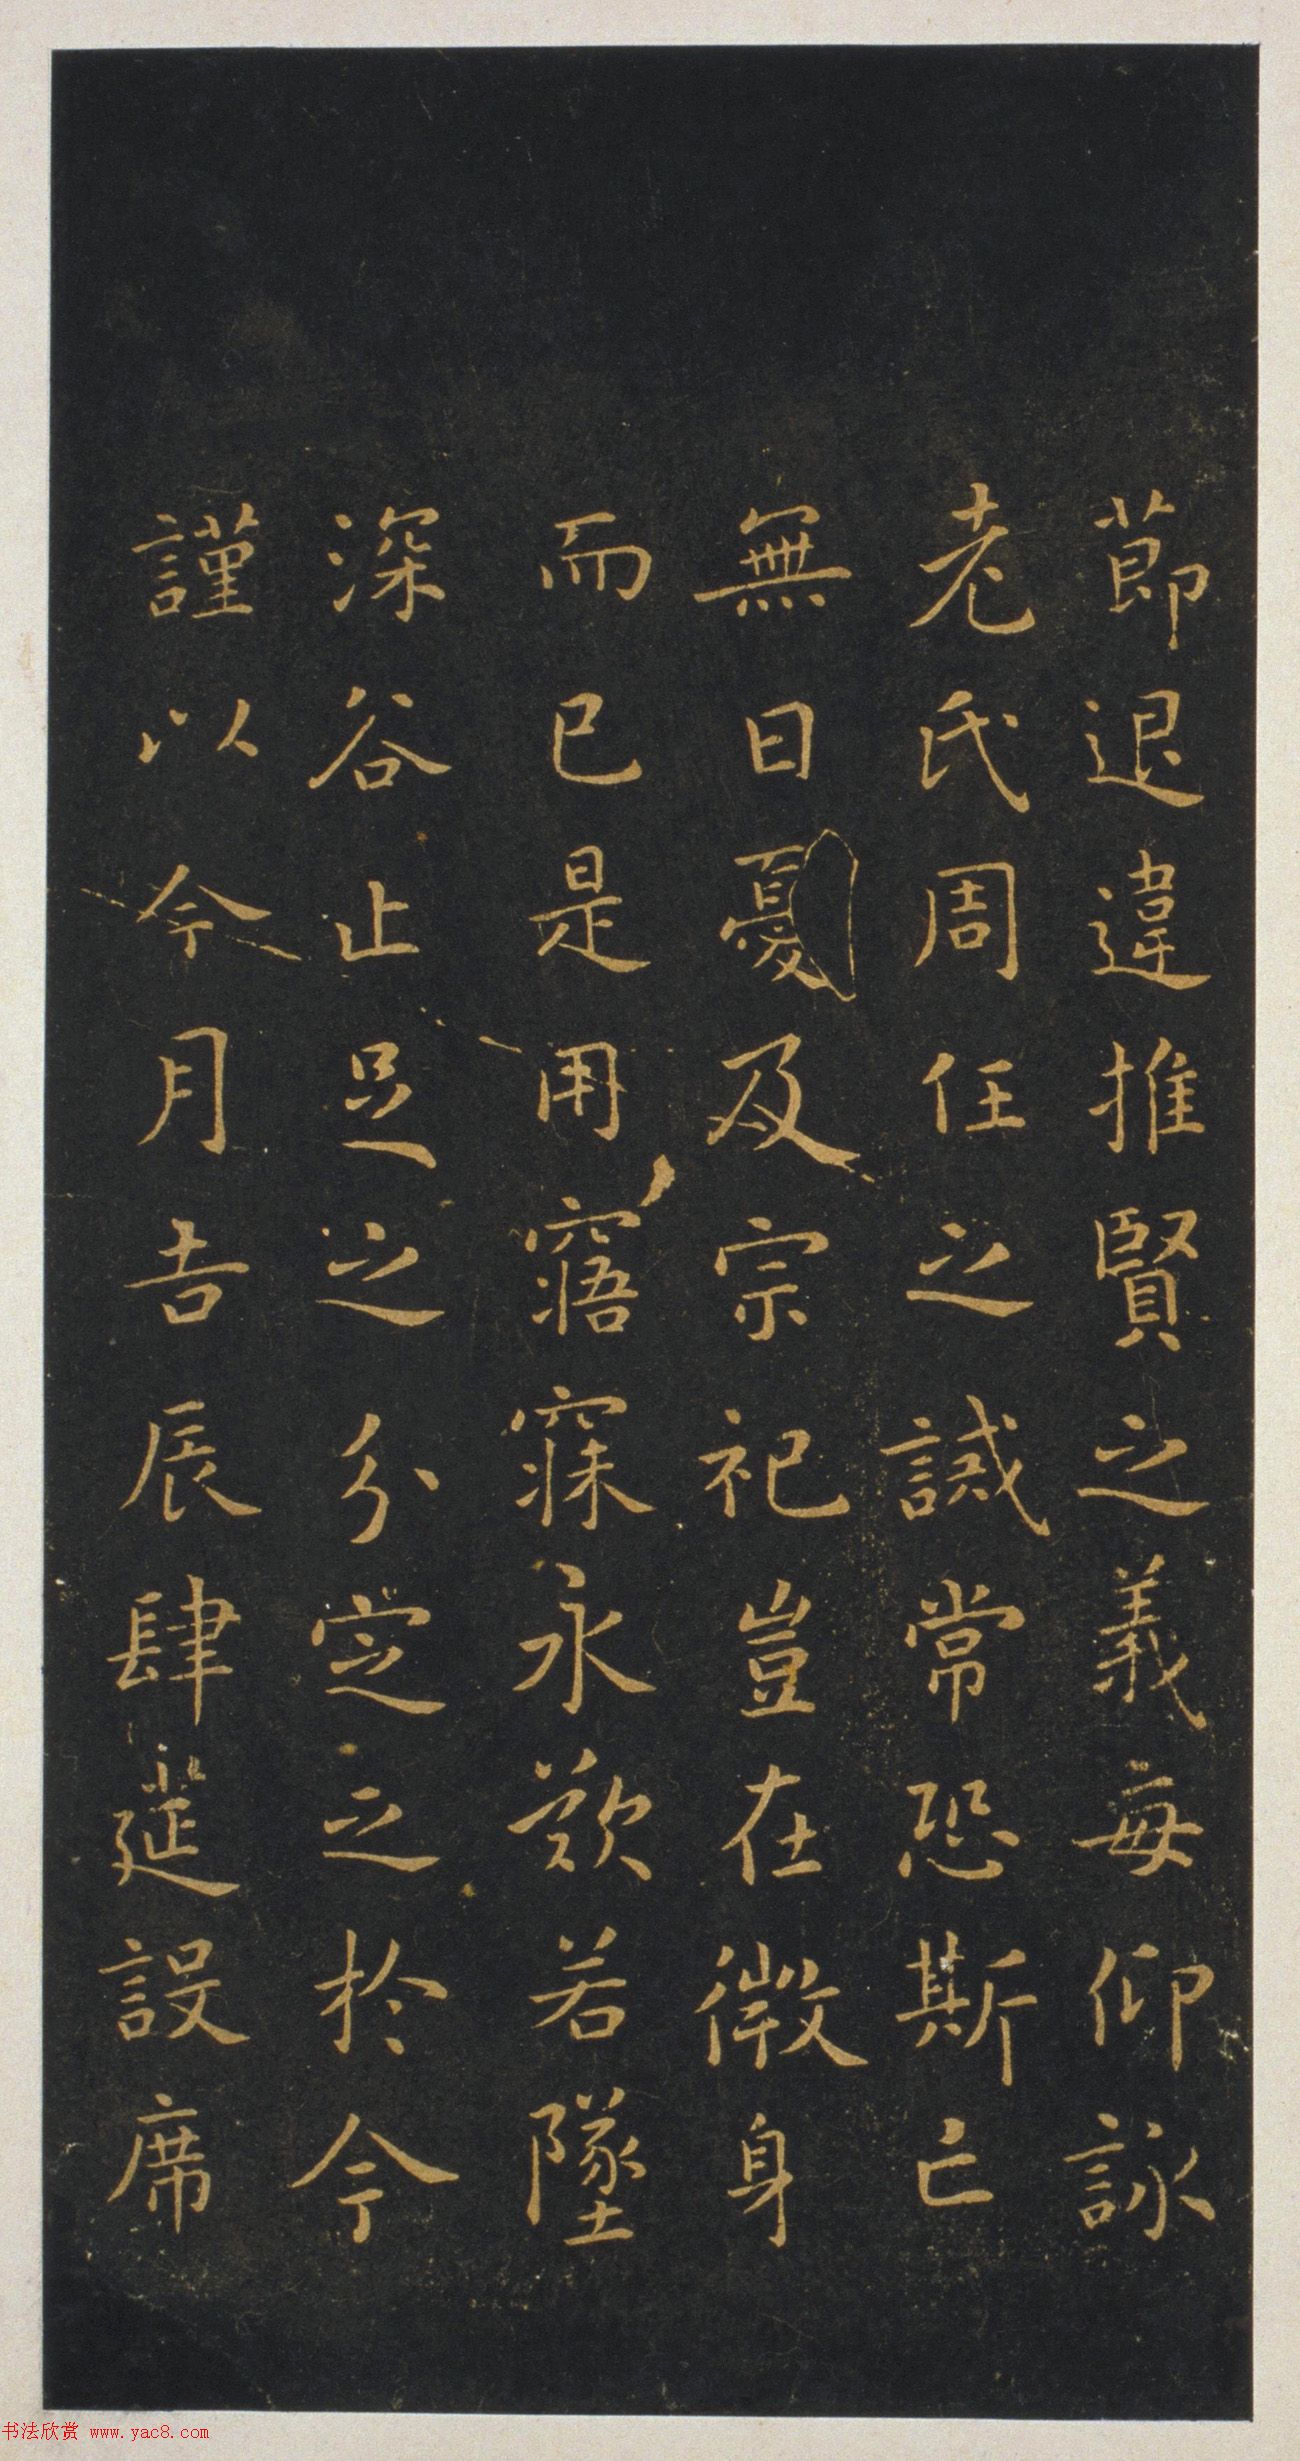 莭退違推賢之義每仰詠
老氏周任之誡常恐斯亡
無日憂及宗祀豈在微身
而已是用寤寐永歎若墜
深谷止足之分定之於今
謹以今月吉辰肆筵設席
书法欣赏 www.yac8.com